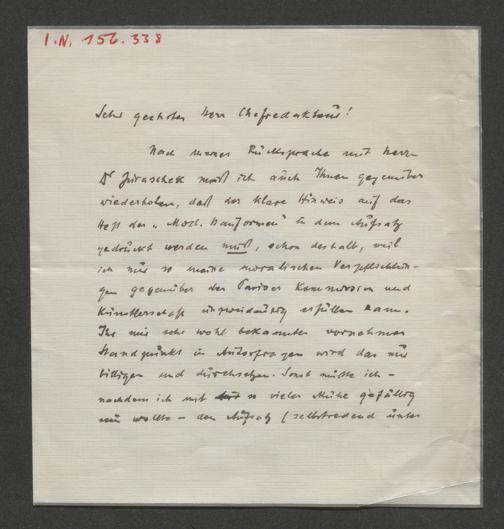 I.N. 156.338
Sehr geehrter Herr Chefredakteur!
Nach meiner Rücksprache mit Herrn
Dr Juraschek muß ich auch Ihnen gegenüber
wiederholen, daß der klare Hinweis auf das
Heft der „Mod. Bauformen" in dem Aufsatz
gedruckt werden muß, schon deshalb, weil
ich nur so meine moralischen Verpflichtun-
gen gegenüber der Pariser Kommission und
Künstlerschaft unzweideutig erfüllen kann.
Ihr mir sehr wohl bekannter vornehmer
Standpunkt in Autorfragen wird das nur
billigen und durchsetzen. Sonst müßte ich –
nachdem ich mit so vieler Mühe gefällig
sein wollte – den Aufsatz (selbstredend unter